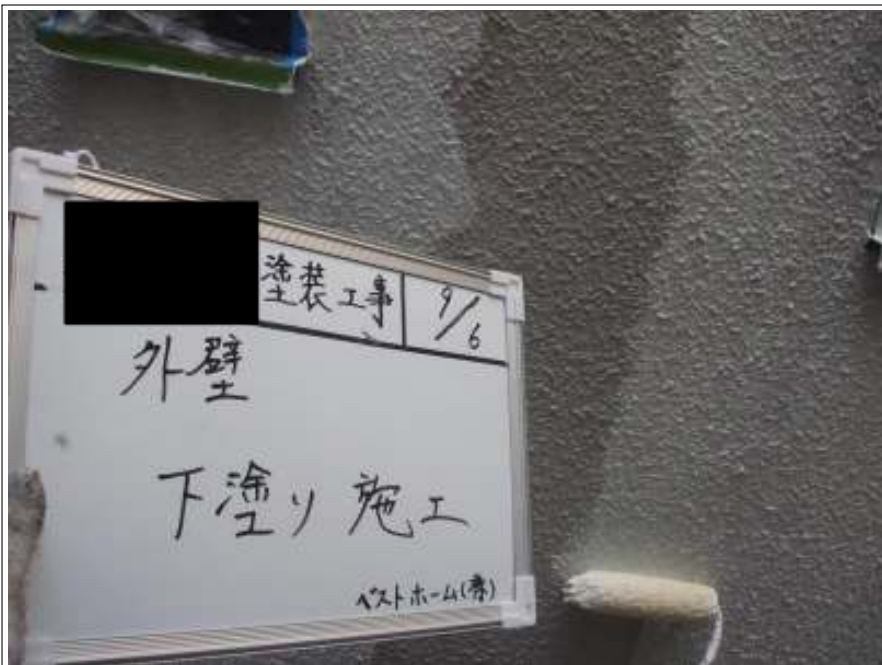 塗装工事 9/6
外壁
下塗り 施工
ベストホーム(株)